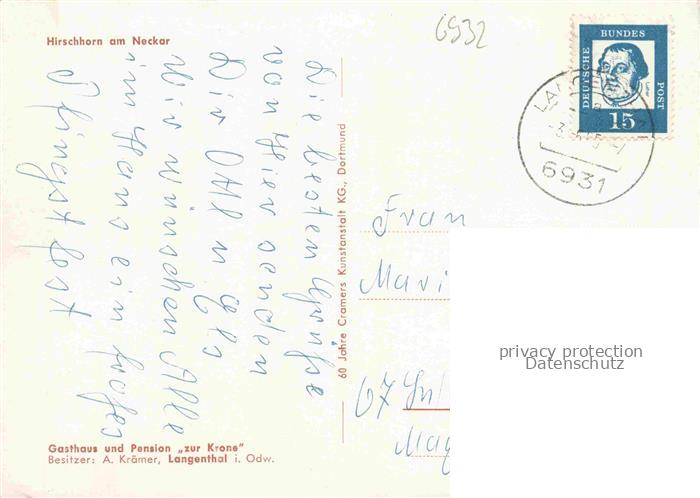 Hirschhorn am Neckar
6932
DEUTSCHE BUNDES POST
Luther
15
6931
Die besten Grüße
von hier senden
Dir Otti u. Els
Wir wünschen Alle
im Haus ein frohes
Pfingstfest
60 Jahre Cramers Kunstanstalt KG., Dortmund
Frau
Mari
67
privacy protection
Datenschutz
Gasthaus und Pension „zur Krone"
Besitzer: A. Krämer, Langenthal i. Odw.